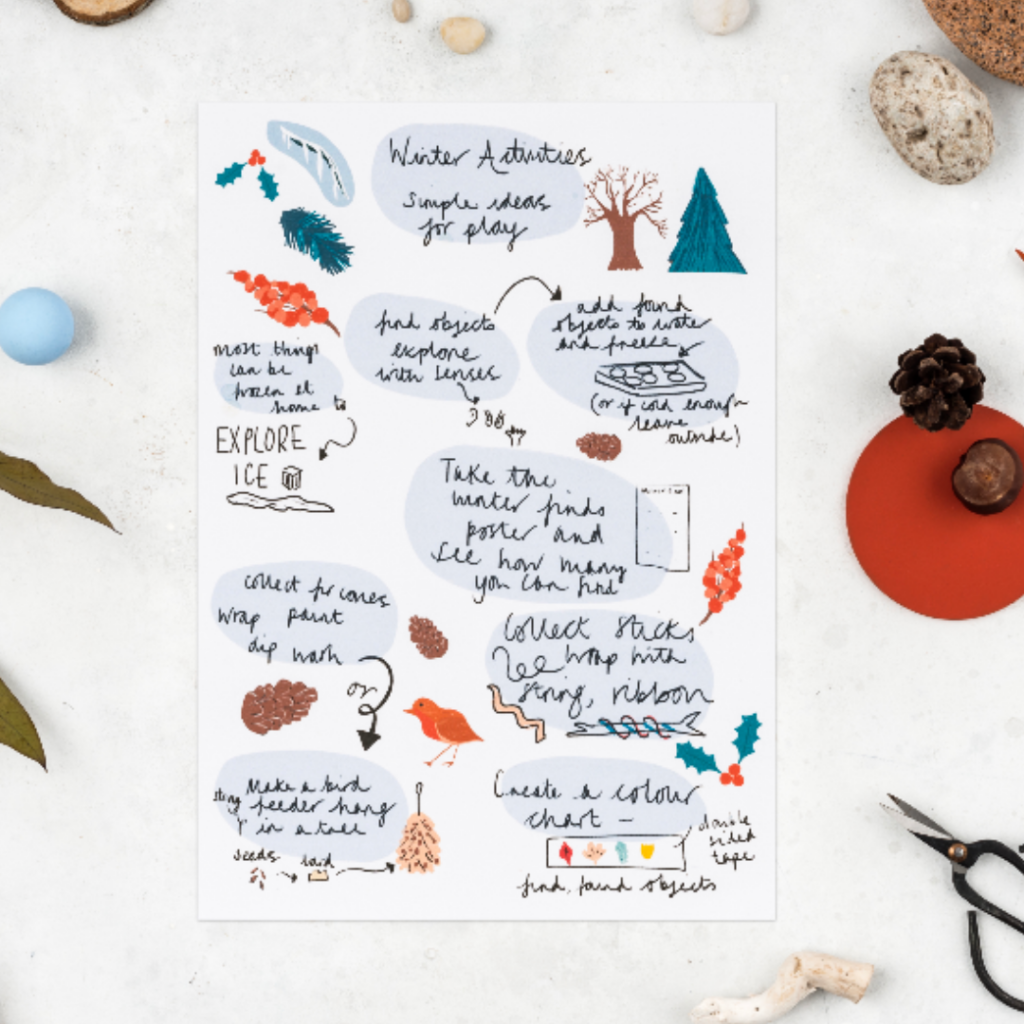 Winter Activities
Simple ideas
for play
find objects
explore
with lenses
add found
objects to water
and freeze
(or if cold enough
leave
outside)
most things
can be
frozen at
home to
EXPLORE
ICE
Take the
winter finds
poster and
see how many
you can find
collect fir cones
wrap paint
dip wash
or
Collect sticks
wrap with
string, ribbon
Make a bird
string feeder hang
in a tree
seeds
lard
Create a colour
chart –
double
sided
tape
find, found objects